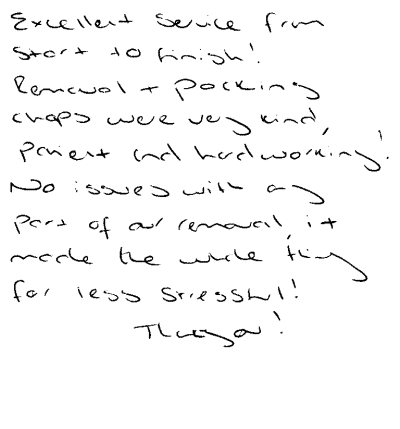 Excellent service from
start to finish!
Removal + packing
chaps were very kind,
patient and hardworking!
No issues with any
part of our removal, it
made the whole thing
far less stressful!
Thankyou!